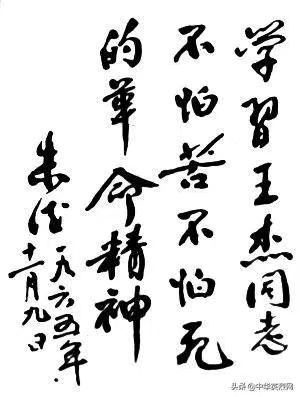 学習王杰同志
不怕苦不怕死
的革命精神
朱德
一九六五年.
十一月九日
头条@中华英烈网